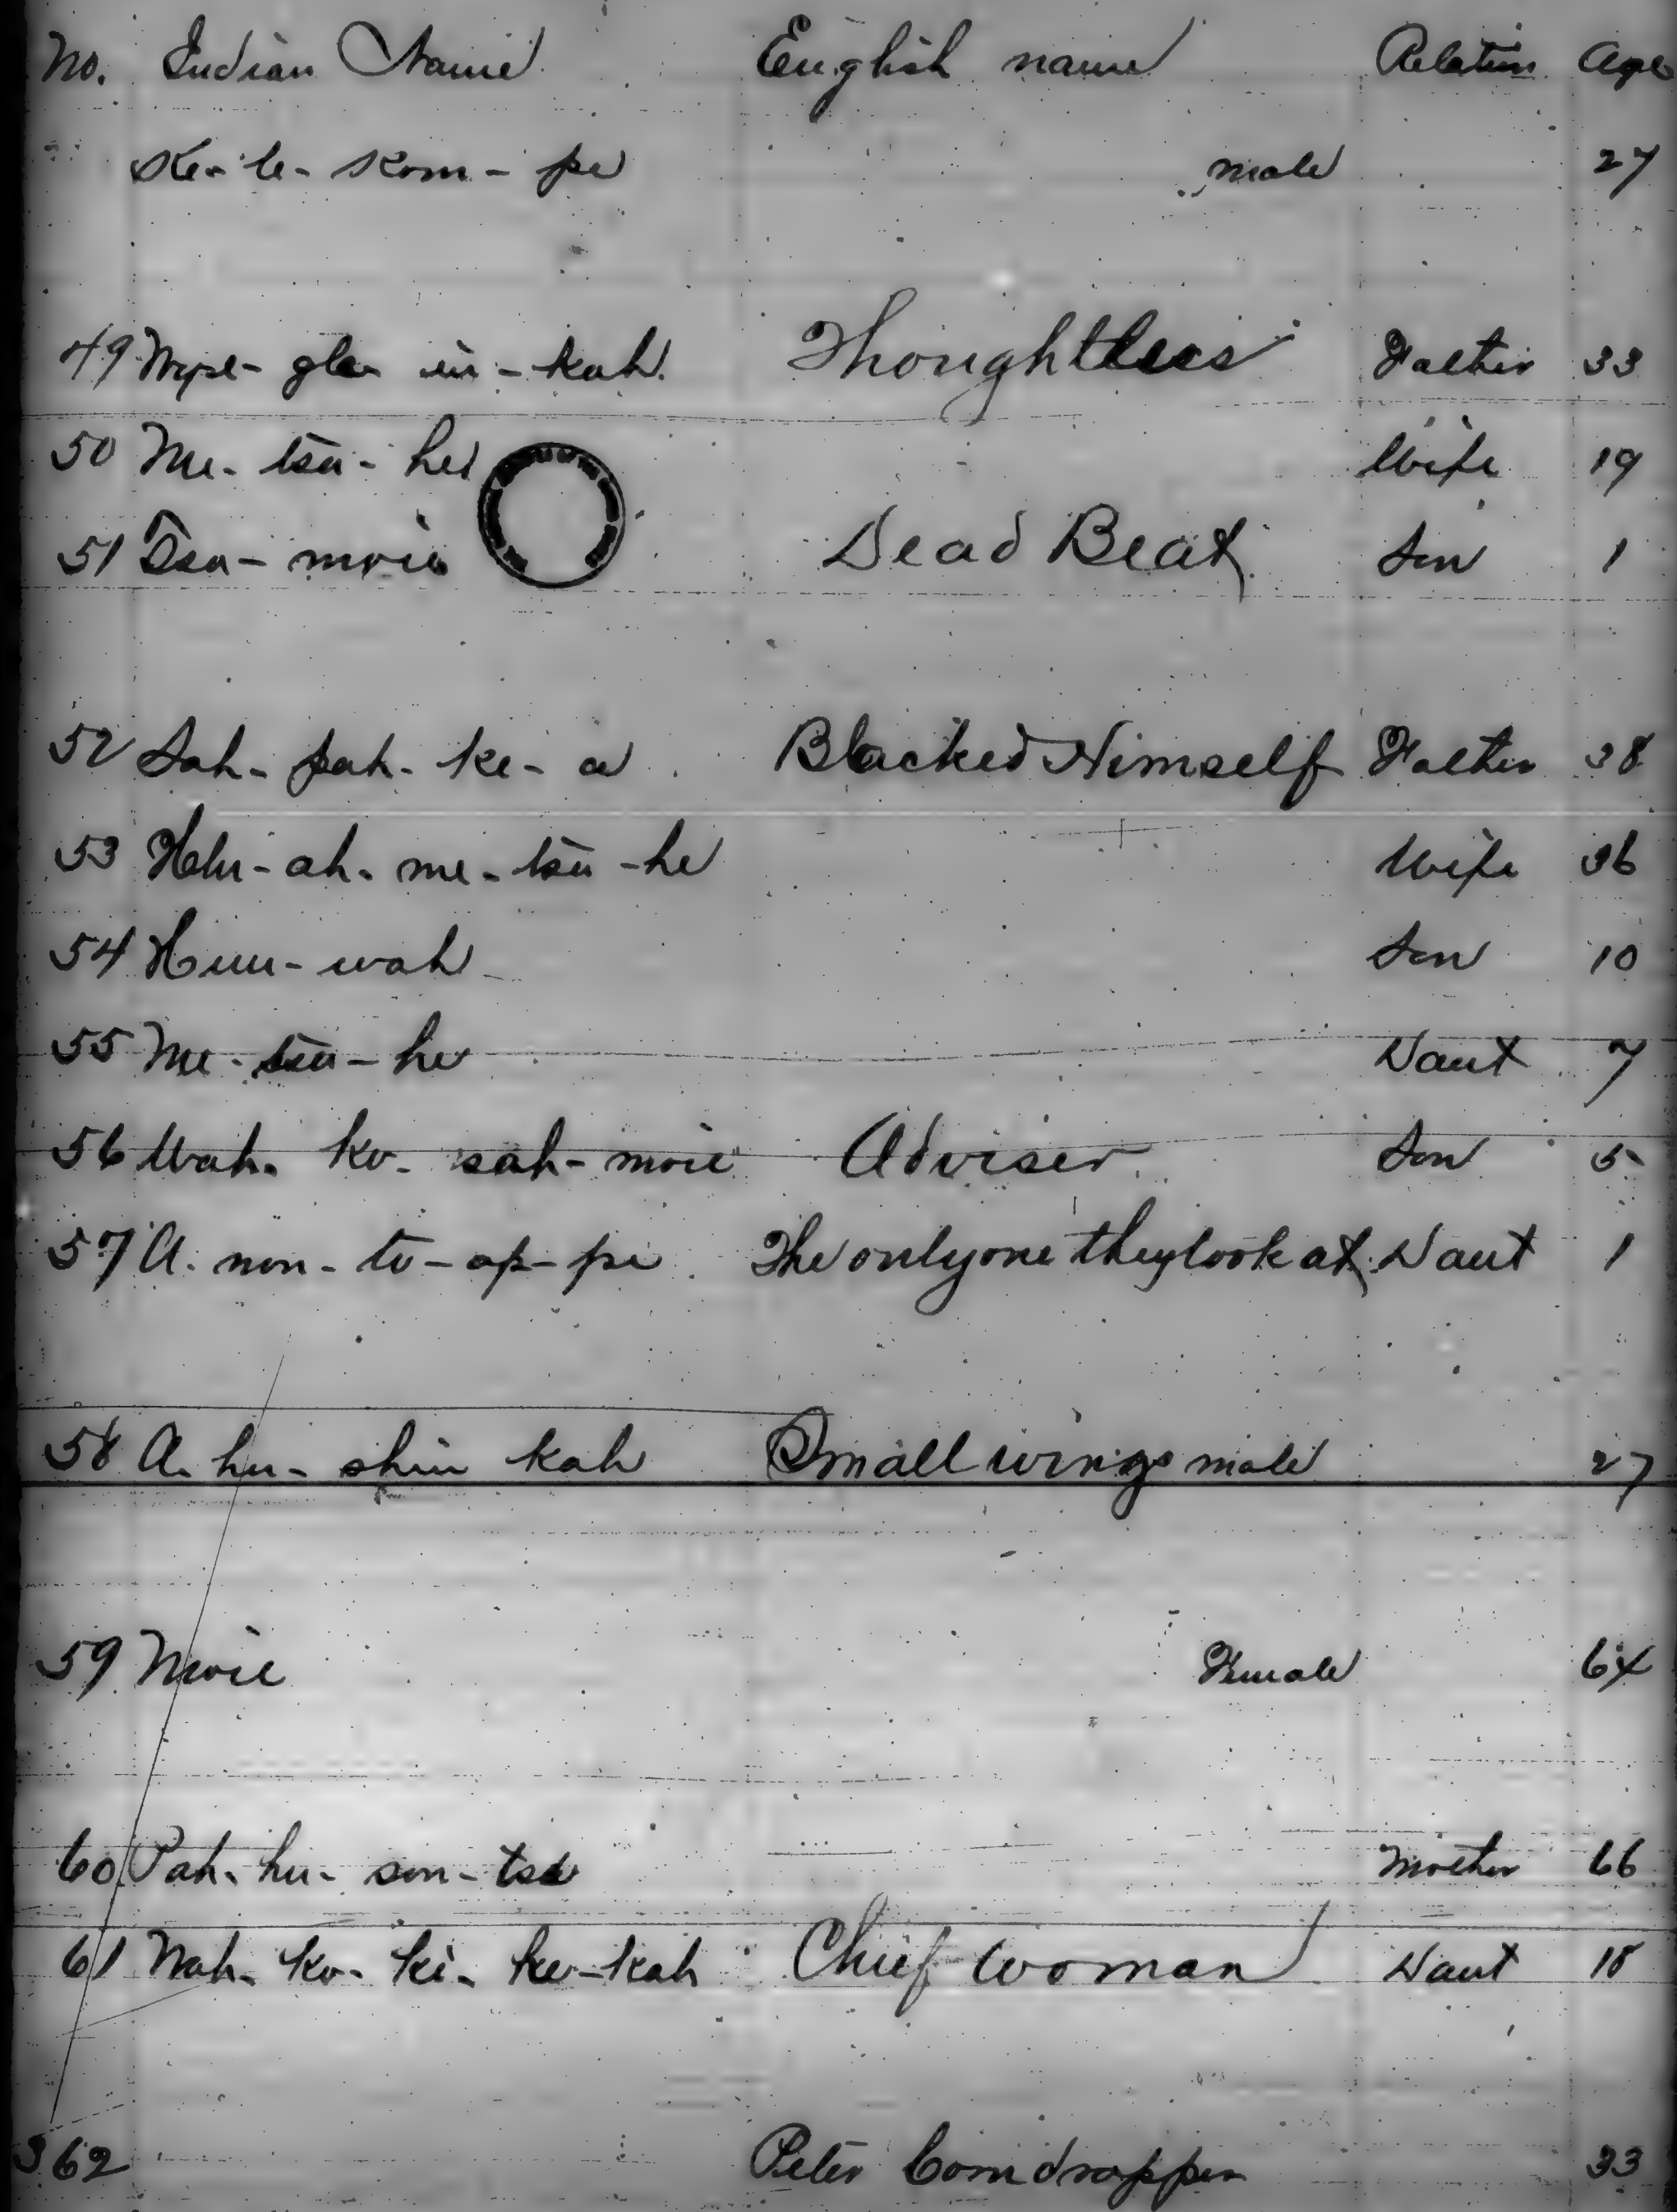 No. Indian Name English name Relation Age
Ke-le-kom-pe male 27
49 -gla in-kah Thoughtless Father 33
50 Me-tsa-he Wife 19
51 Tsa-moie Dead Beat Son 1
52 Sah-pah-ke-a Blacked Himself Father 38
53 -ah-me-tsa-he Wife 36
54 -wah Son 10
55 Me-tsa-he Daut 7
56 Wah-ko-sah-moie Adviser Son 5
57 A-non-to-op-pe The only one they look at Daut 1
58 A-hu-shin kah Small wings male 27
59 Moie Female 64
60 Pah-hu-son-tsa Mother 66
61 Wah-ko-ki-he-kah Chief Woman Daut 18
362 Peter Corndropper 33